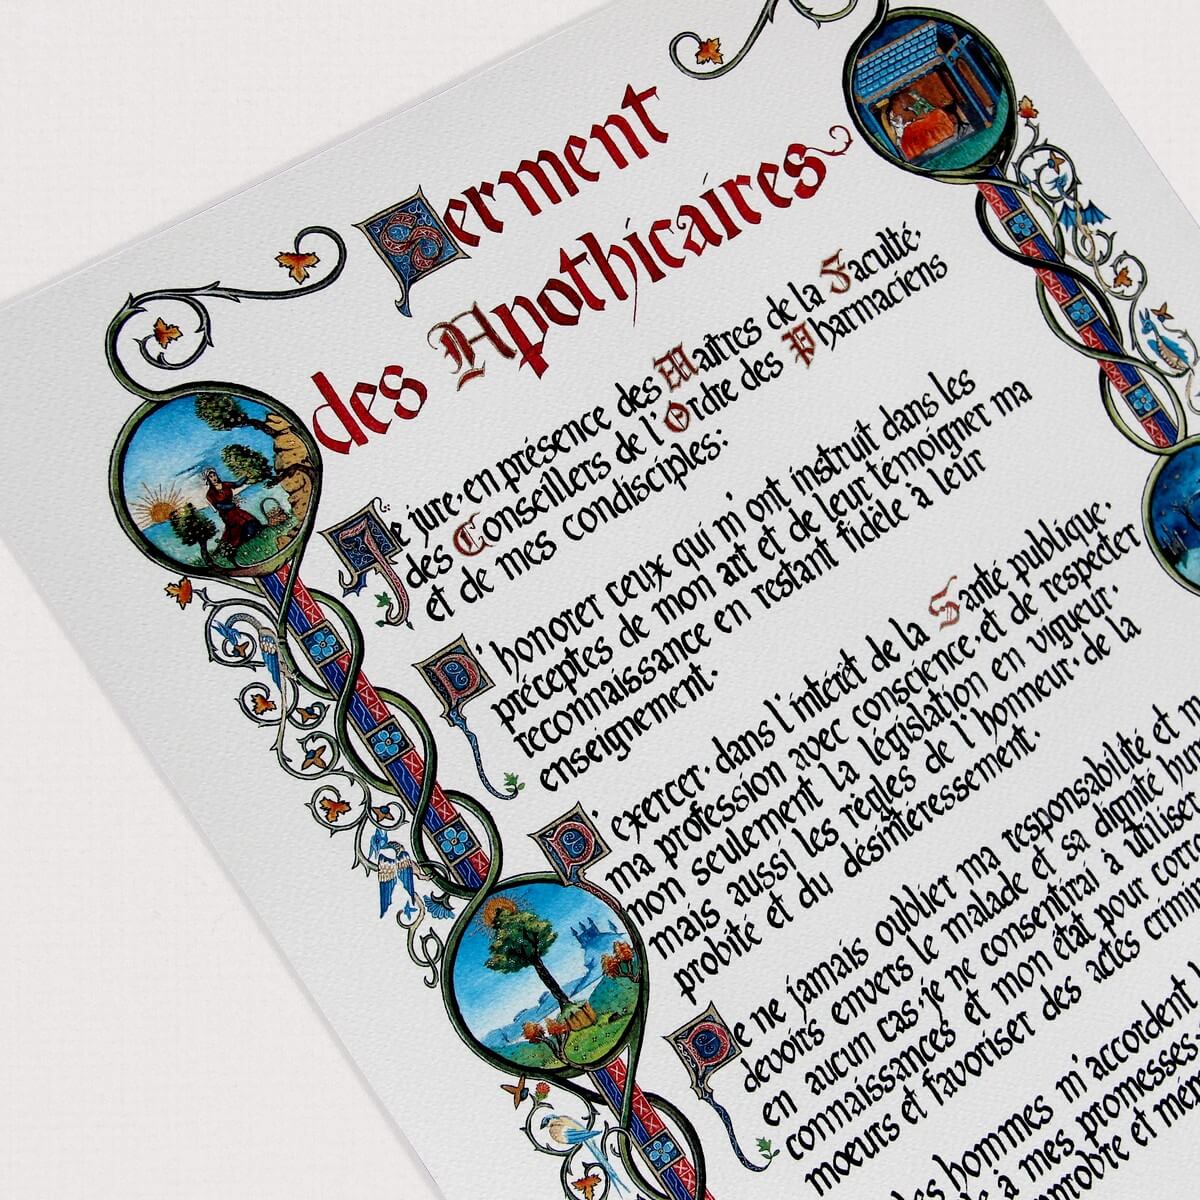 Serment
des Apothicaires
Je jure, en présence des Maîtres de la Faculté,
des Conseillers de l'Ordre des Pharmaciens
et de mes condisciples:
D'honorer ceux qui m'ont instruit dans les
préceptes de mon art et de leur témoigner ma
reconnaissance en restant fidèle à leur
enseignement.
D'exercer, dans l'intérêt de la Santé publique,
ma profession avec conscience, et de respecter
non seulement la législation en vigueur,
mais aussi les règles de l'honneur, de la
probité et du désintéressement.
De ne jamais oublier ma responsabilité et m
devoirs envers le malade et sa dignité hum
en aucun cas, je ne consentirai à utiliser
connaissances et mon état pour corro
moeurs et favoriser des actes crimi
les hommes m'accordent l
à mes promesses.
mépr